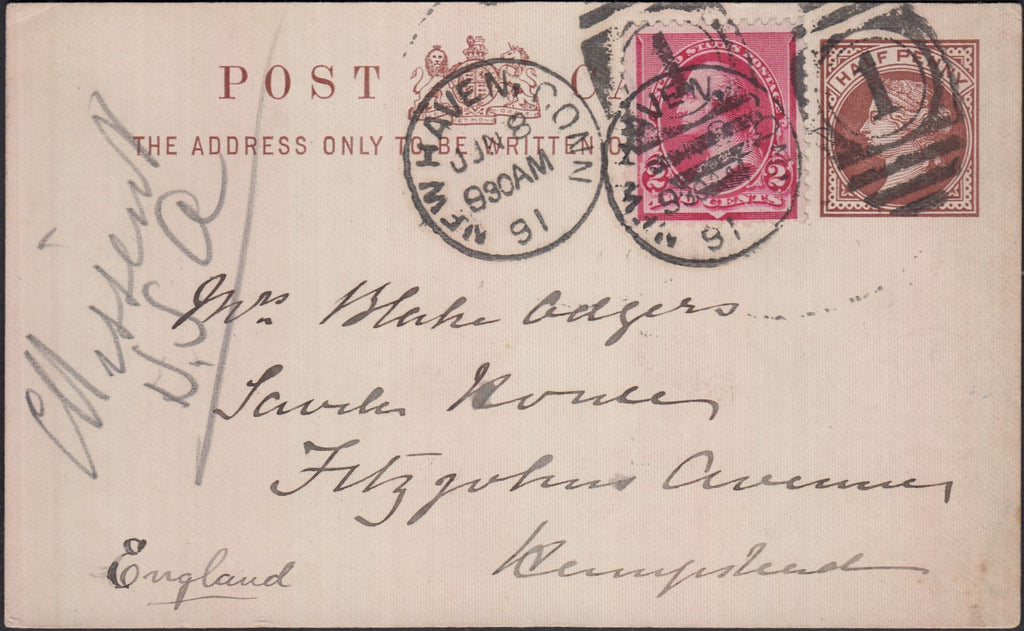 POST C
THE ADDRESS ONLY TO BE WRITTEN O
NEW HAVEN, CONN
JUN 8
930AM
91
NEW HAVEN, CONN
930
91
1
UNITED STATES POSTAGE
2 2
CENTS
HALF PENNY
1
Missent
U.S.A
Mrs Blake Odgers
House
Fitzjohns Avenue
Hempstead
England